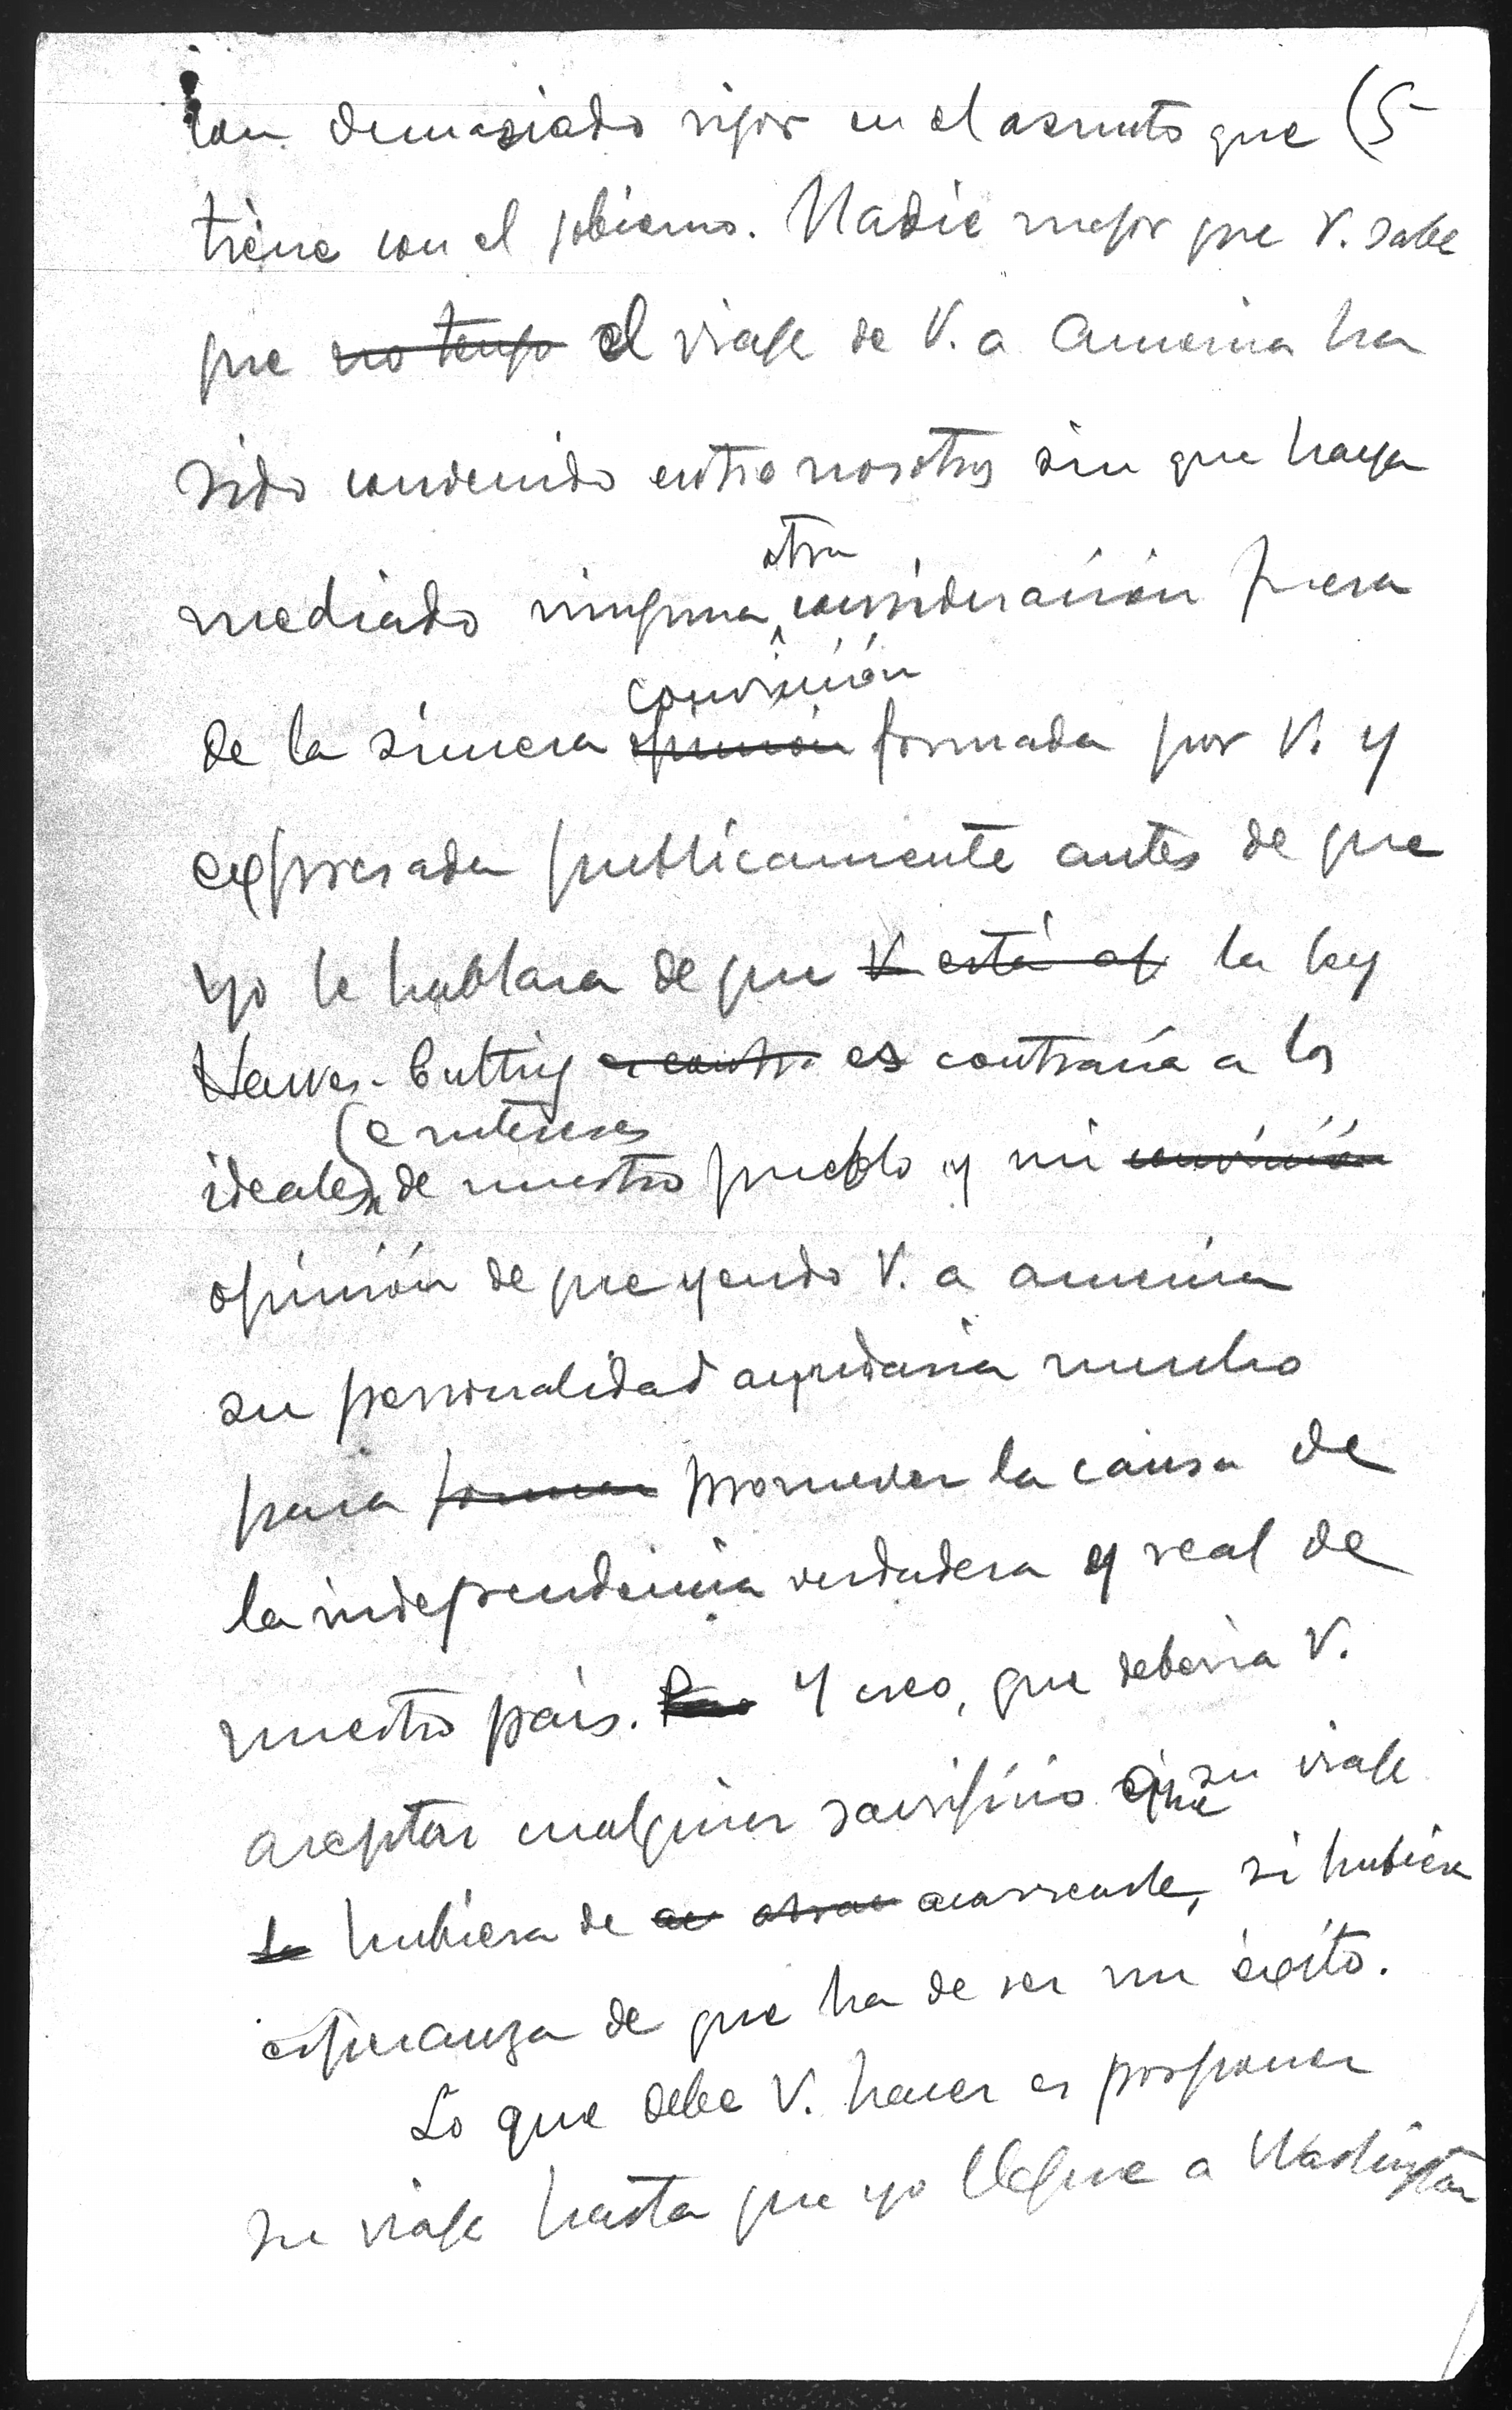 con demasiado rigor en el asunto que (5
tiene con el gobierno. Nadie mejor que V. sabe
que no tengo el viaje de V. a America ha
sido convenido entre nosotros sin que haya
otra
mediado ninguna consideración fuera
convicción
de la sincera opinión formada por V. y
expresada publicamente antes de que
yo le hablara de que V. está la ley
Hawes-Cutting es contra es contraria a los
e intereses
ideales de nuestro pueblo y mi convicción
opinión de que yendo V. a america
su personalidad ayudaria mucho
para promover la causa de
la independencia verdadera y real de
nuestro país. Y creo, que deberia V.
aceptar cualquier sacrificio que su viaje
le hubiera de acarrearle, si hubiera
esperanza de que ha de ser un éxito.
Lo que debe V. hacer es posponer
su viaje hasta que yo llegue a Washington